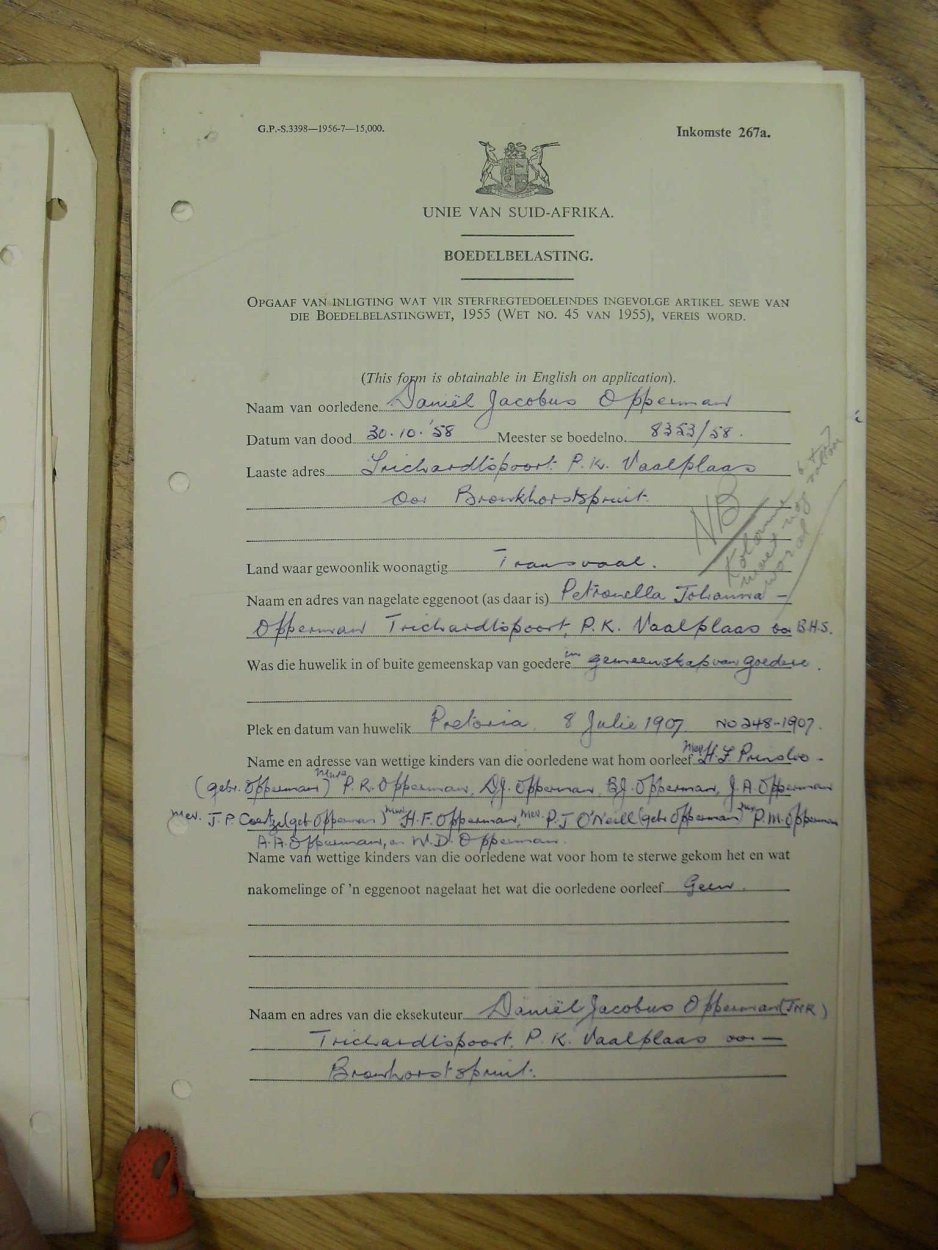 G.P.-S.3398—1956-7—15,000.
Inkomste 267a.
UNIE VAN SUID-AFRIKA.
BOEDELBELASTING.
Opgaaf van inligting wat vir sterfregtedoeleindes ingevolge artikel sewe van
die Boedelbelastingwet, 1955 (Wet no. 45 van 1955), vereis word.
(This form is obtainable in English on application).
Naam van oorledene Daniël Jacobus Opperman
Datum van dood 30.10.'58 Meester se boedelno. 8353/58.
Laaste adres Trichardtspoort P.K. Vaalplaas
oor Bronkhorstspruit.
NB
Kolomme
moet nog
word
Land waar gewoonlik woonagtig Transvaal.
Naam en adres van nagelate eggenoot (as daar is) Petronella Johanna –
Opperman Trichardtspoort, P.K. Vaalplaas oor B.H.S.
Was die huwelik in of buite gemeenskap van goedere in gemeenskap van goedere.
Plek en datum van huwelik Pretoria, 8 Julie 1907 NO 248-1907.
Name en adresse van wettige kinders van die oorledene wat hom oorleef Mev H.L. Prinsloo –
(gebr. Opperman) P.R. Opperman, D.J. Opperman, B.J. Opperman, J.A. Opperman
Mev. J.P. Coetzee (geb Opperman) H.F. Opperman, Mev. P.J O'Neill (gebr Opperman) P.M. Opperman
A.A. Opperman, en W.D. Opperman.
Name van wettige kinders van die oorledene wat voor hom te sterwe gekom het en wat
nakomelinge of 'n eggenoot nagelaat het wat die oorledene oorleef Geen.
Naam en adres van die eksekuteur Daniël Jacobus Opperman (JNR)
Trichardtspoort, P.K. Vaalplaas oor –
Bronhorstspruit.